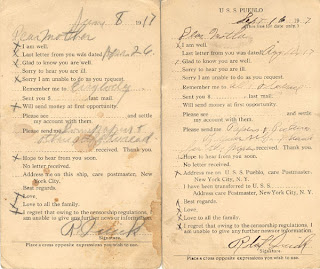 June 8 1917
Dear Mother
x I am well.
Last letter from you was dated Apr 26.
x Glad to know you are well.
Sorry to hear you are ill.
x Sorry I am unable to do as request.
Remember me to Everybody
Sent you $ last mail.
x Will send money at first opportunity.
Please send and see
my account with them.
Please send me
received. Thank you.
x Hope to hear from you soon.
No letter received.
x Address me on this ship, care postmaster, New
York City.
Best regards.
x Love.
x Love to all the family.
x I regret that owing to the censorship regulations, I am
unable to give any further news or information.
Signature.
Place a cross opposite expressions you wish to use.
U. S. S. PUEBLO
Sept 16 1917
(Give date for date sent.)
Dear Mother
I am well.
Last letter from you was dated Aug
Glad to know you are well.
Sorry to hear you are ill.
Sorry I am unable to do as you request.
Remember me to
Sent you $ last mail.
Will send money at first opportunity.
Please see and
my account with them.
Please send me
received. Thank you.
Hope to hear from you soon.
No letter received.
x Address me on U. S. S. Pueblo, Care Postmaster,
New York City, N. Y.
I have been transferred to U. S. S.
Address care Postmaster, New York City, N. Y.
Best regards.
x Love.
x Love to all the family.
x I regret that owing to the censorship regulations, I
am unable to give any further news or information.
Signature.
Place a cross opposite expressions you wish to use.